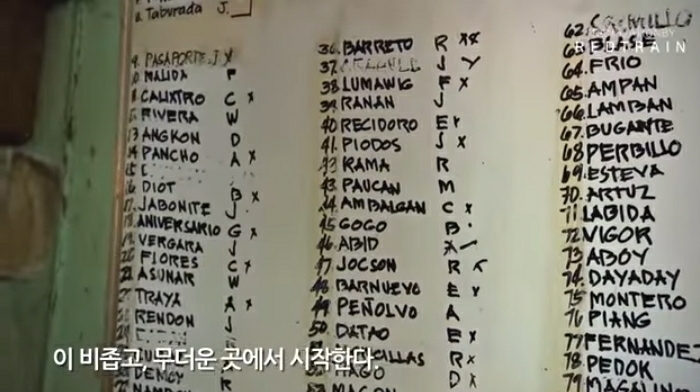 8. Taburada J.
9. PAGAPORTE J X
MALIDA F
CALIXTRO C x
RIVERA W
ANGKON D
PANCHO A x
DIOT B x
JABONITE J
ANIVERSARIO G x
VERGARA J
FLORES C x
ASUNAR W
TRAYA A x
RENDON J
36. BARRETO R xx
37.
38 LUMAWIG F x
39. RANAN J
40 RECIDORO E x
41. PIODOS J x
RAMA R
43 PAUCAN M
44 AMBALGAN C x
45 GOGO B
46. ABID
47 JOCSON R x
48 BARNUEVO E x
49 PEÑOLVO A
50 DATAO E x
62.
63. BLASE
64. FRIO
65. AMPAN
66. LAMBAN
67. BUGANTE
68 PERBILLO
69. ESTEVA
70. ARTUZ
71 LABIDA
72 VIGOR
73 ABOY
74. DAYADAY
75 MONTERO
76 PIANG
77 FERNANDE
78 PEDOK
REDTRAIN
이 비좁고, 무더운 곳에서 시작한다.